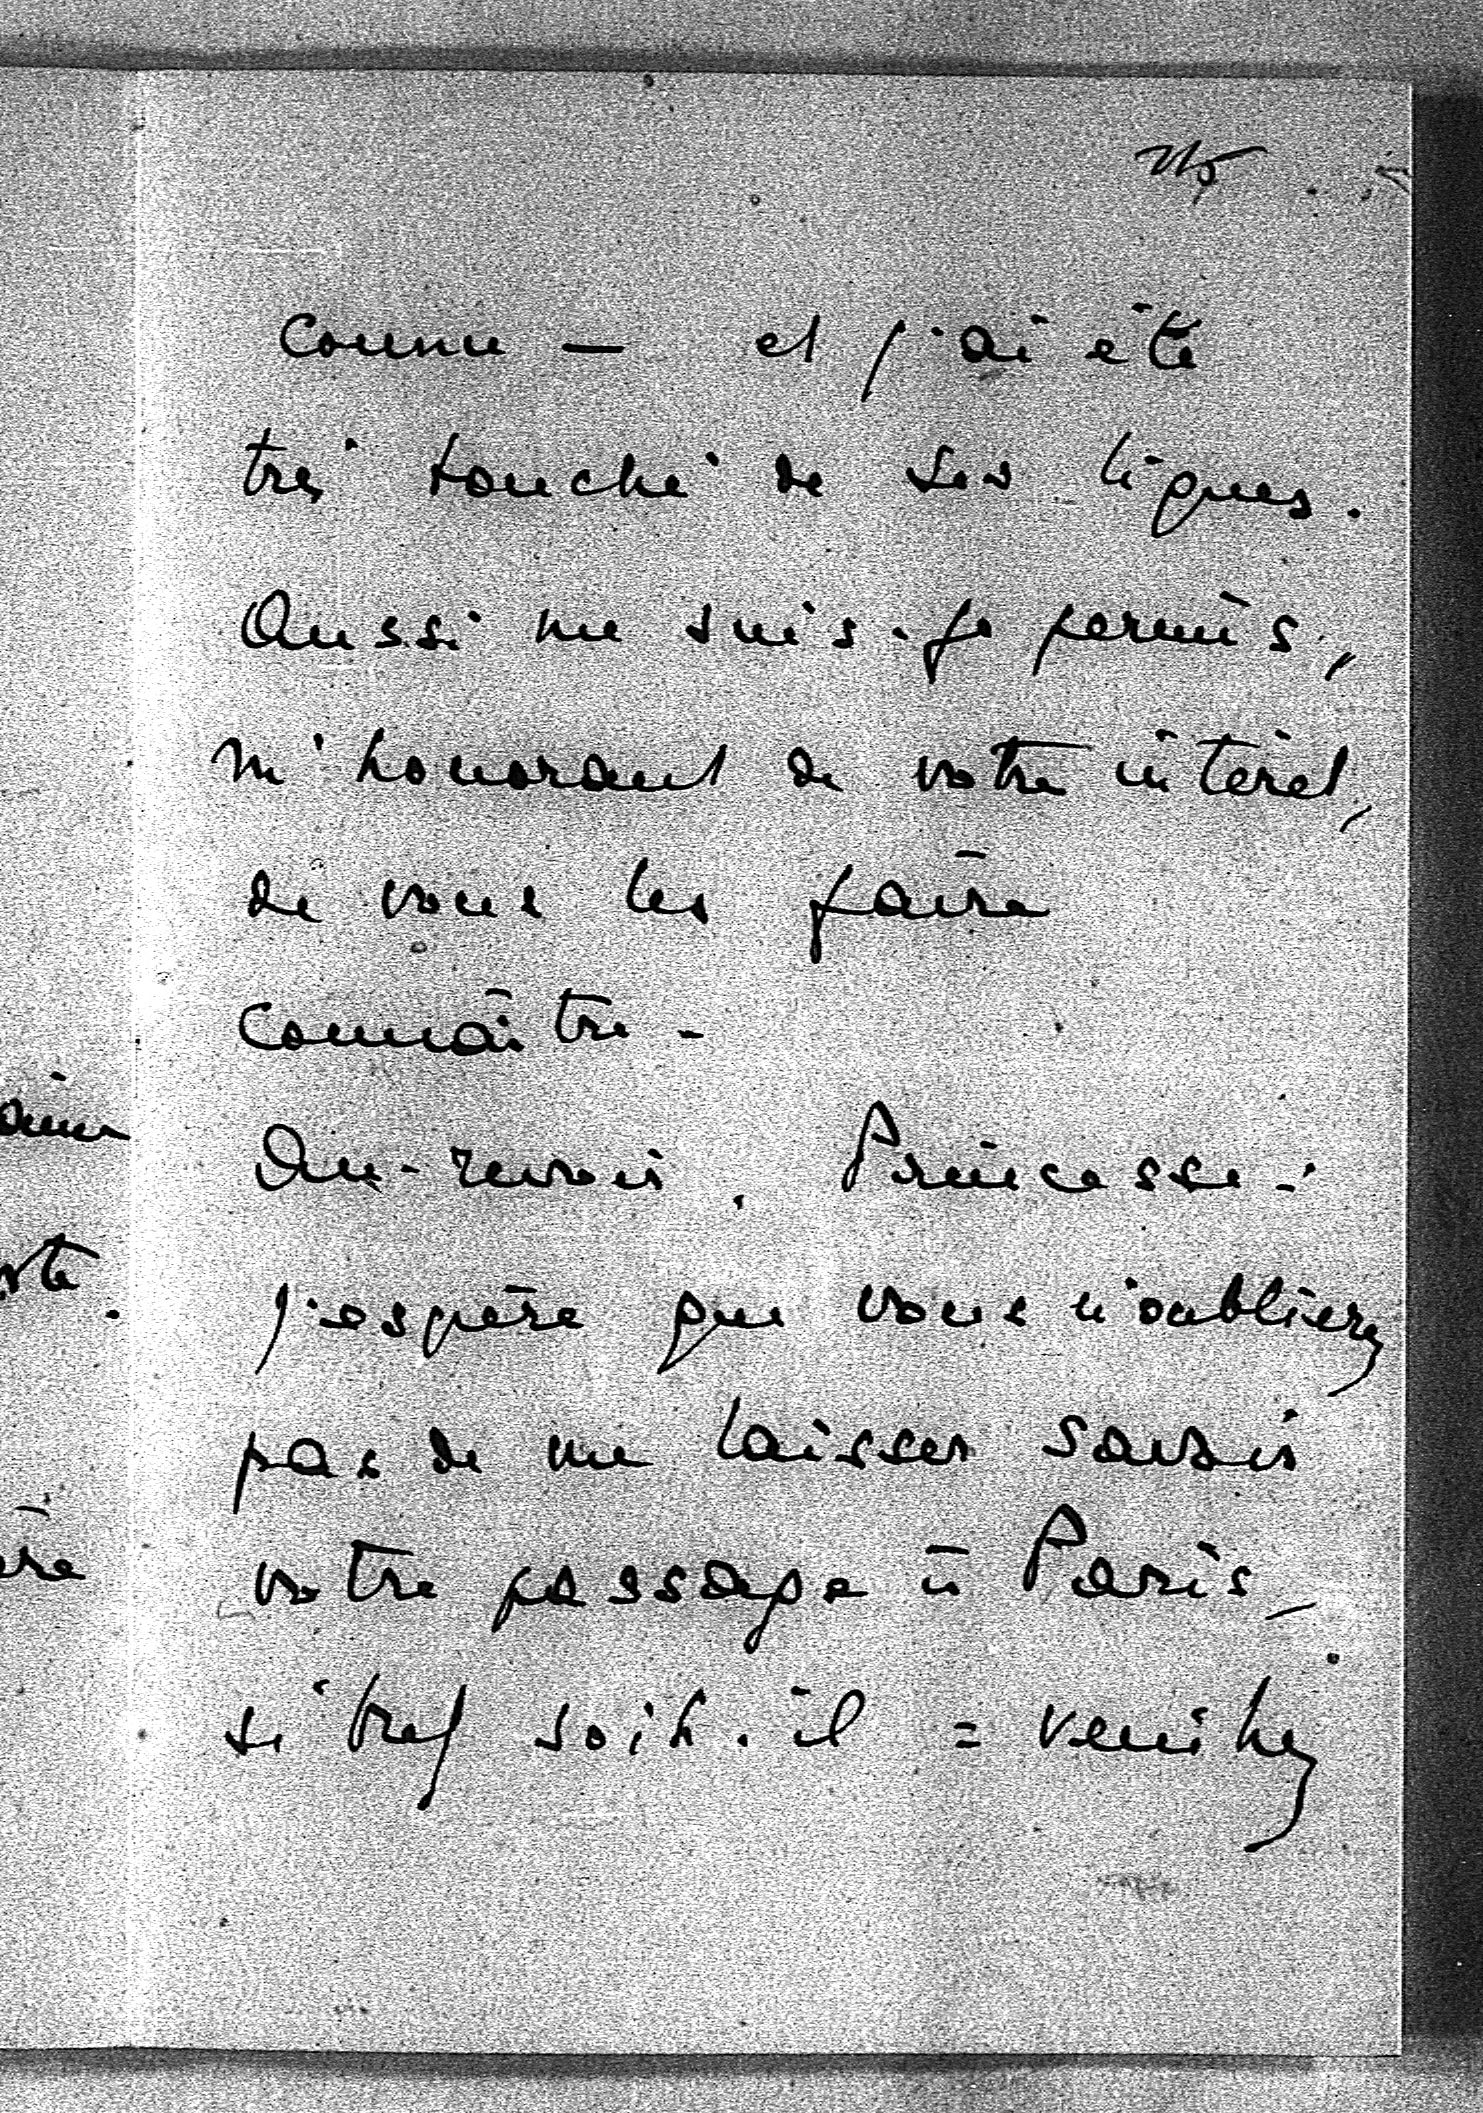 connu — et j'ai été
très touché de ses lignes.
Aussi me suis-je permis,
m'honorant de votre intérêt,
de vous les faire
connaître -
Au-revoir, Princesse :
j'espère que vous n'oublierez
pas de me laisser savoir
votre passage à Paris,
si bref soit-il = veuillez